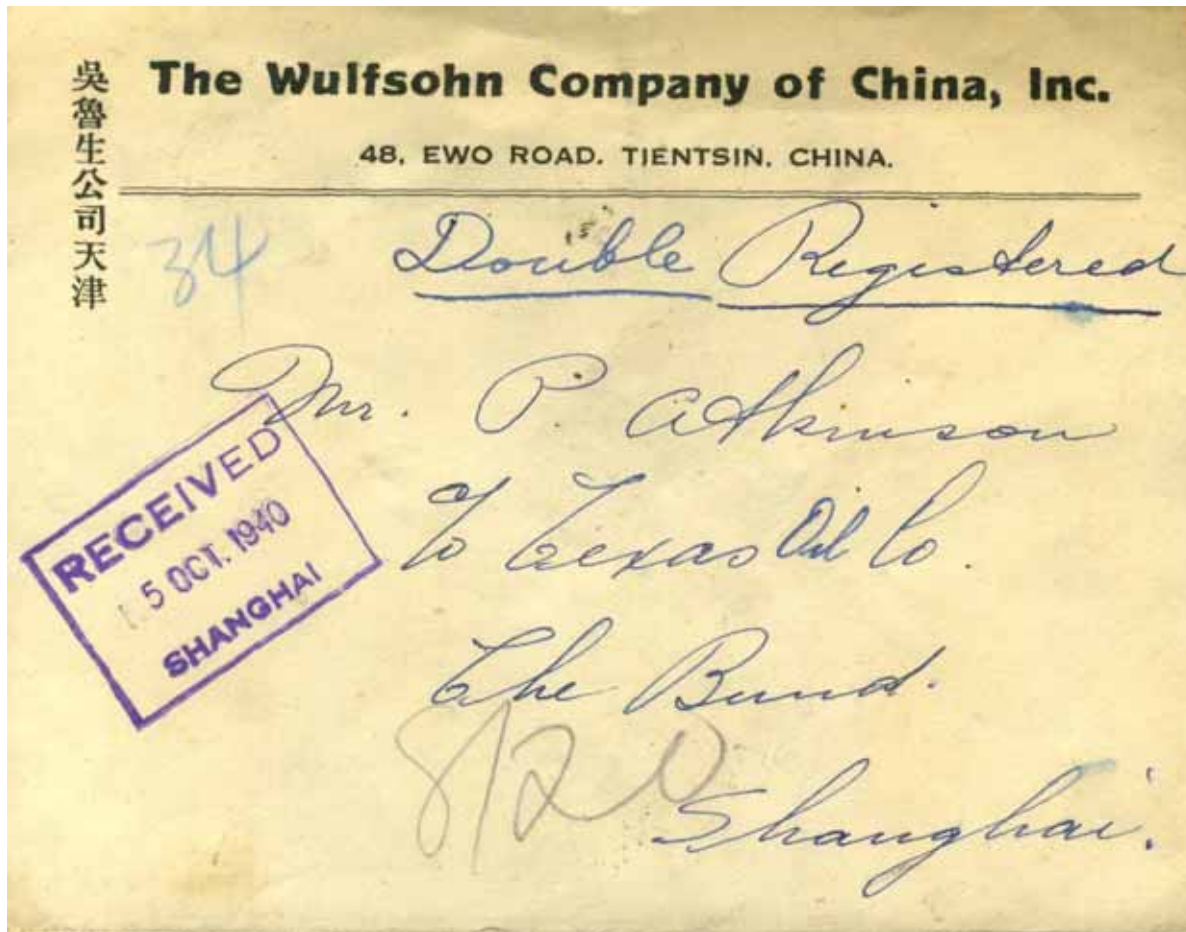 吳魯生公司天津
The Wulfsohn Company of China, Inc.
48, EWO ROAD. TIENTSIN. CHINA.
34
Double Registered
Mr. P. Atkinson
c/o Texas Oil Co.
The Bund.
Shanghai.
RECEIVED
5 OCT. 1940
SHANGHAI